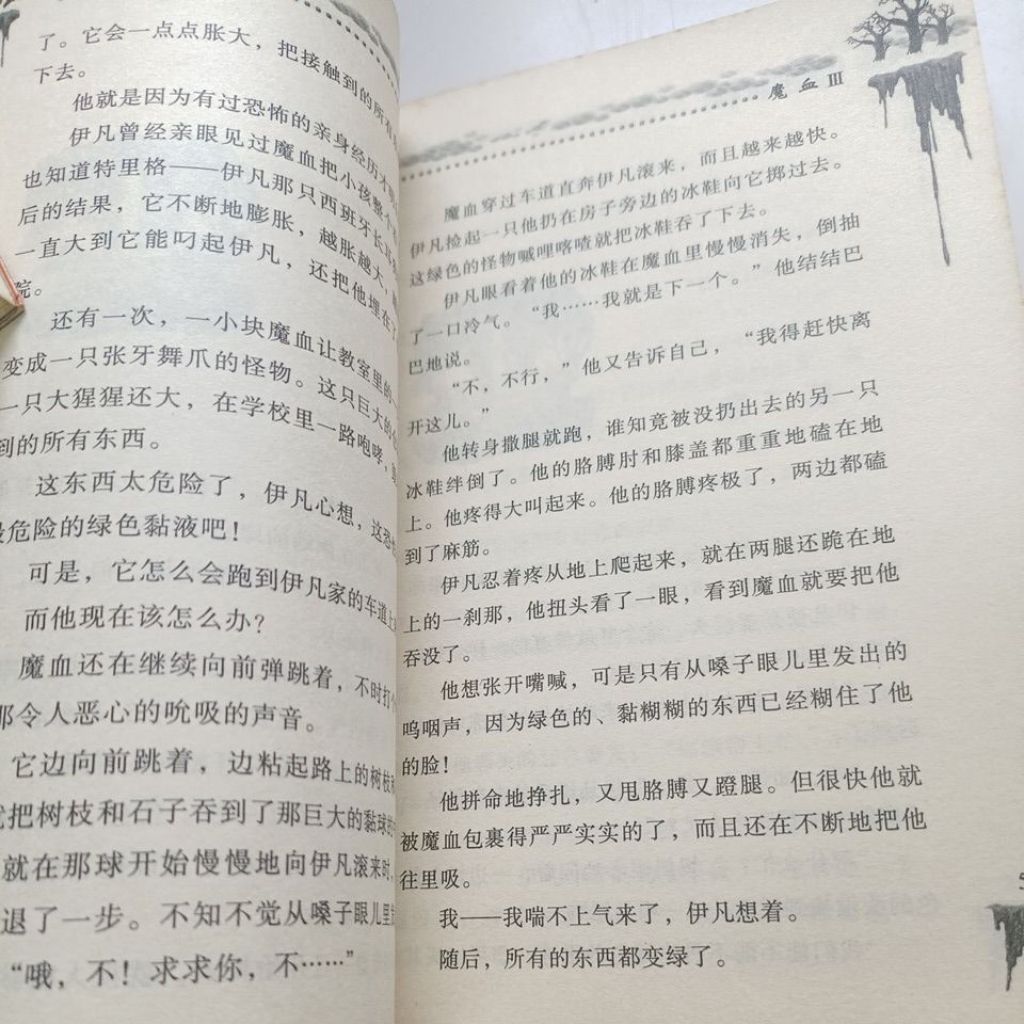 了。它会一点点胀大，把接触到的所有
下去。
他就是因为有过恐怖的亲身经历才
伊凡曾经亲眼见过魔血把小孩整个
也知道特里格——伊凡那只西班牙长耳
后的结果，它不断地膨胀，越胀越大，
一直大到它能叼起伊凡，还把他埋在了
院。
还有一次，一小块魔血让教室里的一
变成一只张牙舞爪的怪物。这只巨大的
一只大猩猩还大，在学校里一路咆哮，
到的所有东西。
这东西太危险了，伊凡心想，这恐怕
最危险的绿色黏液吧！
可是，它怎么会跑到伊凡家的车道上
而他现在该怎么办？
魔血还在继续向前弹跳着，不时打
那令人恶心的吮吸的声音。
它边向前跳着，边粘起路上的树枝
就把树枝和石子吞到了那巨大的黏球
就在那球开始慢慢地向伊凡滚来时，
退了一步。不知不觉从嗓子眼儿里
“哦，不！求求你，不……”
魔血Ⅲ
魔血穿过车道直奔伊凡滚来，而且越来越快。
伊凡捡起一只他扔在房子旁边的冰鞋向它掷过去。
这绿色的怪物喊哩喀喳就把冰鞋吞了下去。
伊凡眼看着他的冰鞋在魔血里慢慢消失，倒抽
了一口冷气。“我……我就是下一个。”他结结巴
巴地说。
“不，不行，”他又告诉自己，“我得赶快离
开这儿。”
他转身撒腿就跑，谁知竟被没扔出去的另一只
冰鞋绊倒了。他的胳膊肘和膝盖都重重地磕在地
上。他疼得大叫起来。他的胳膊疼极了，两边都磕
到了麻筋。
伊凡忍着疼从地上爬起来，就在两腿还跪在地
上的一刹那，他扭头看了一眼，看到魔血就要把他
吞没了。
他想张开嘴喊，可是只有从嗓子眼儿里发出的
呜咽声，因为绿色的、黏糊糊的东西已经糊住了他
的脸！
他拼命地挣扎，又甩胳膊又蹬腿。但很快他就
被魔血包裹得严严实实的了，而且还在不断地把他
往里吸。
我——我喘不上气来了，伊凡想着。
随后，所有的东西都变绿了。